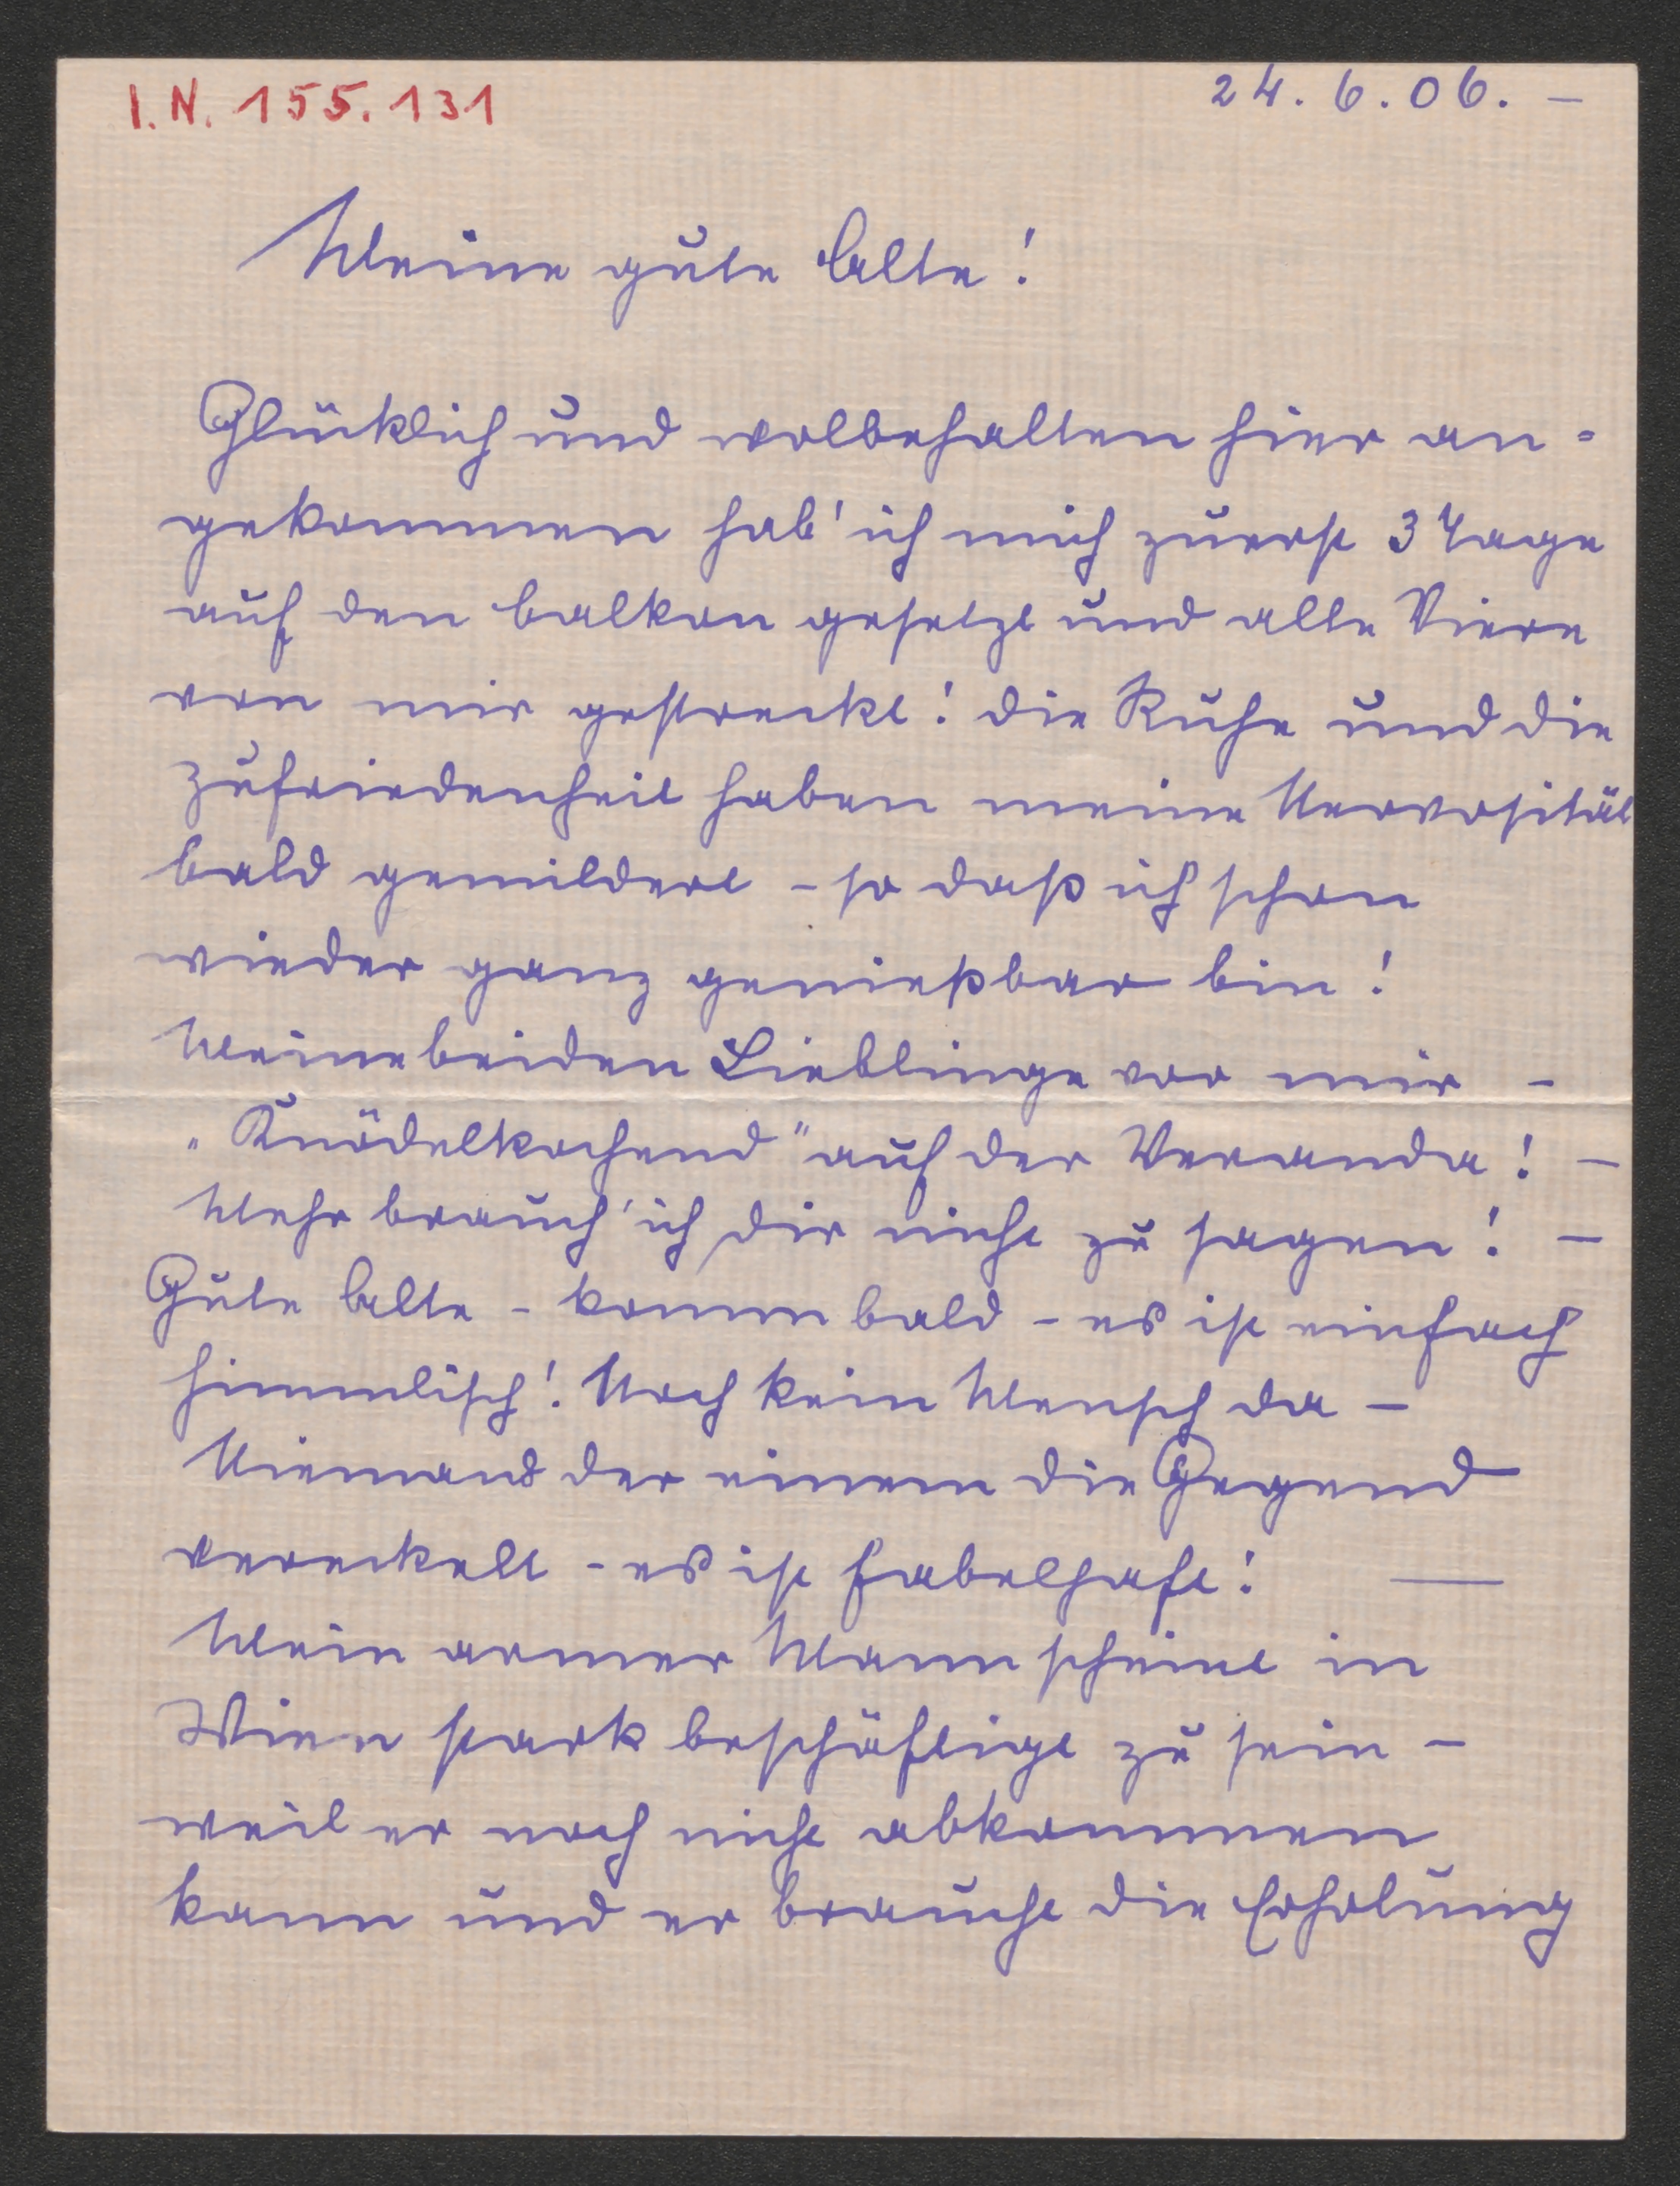 I.N. 155.131
24.6.06. –
Meine gute Alte!
Glücklich und wolbehalten hier an=
gekommen hab' ich mich zuerst 3 Tage
auf den balkon gesetzt und alle Viere
von mir gestreckt! die Ruhe und die
Zufriedenheit haben meine Nervosität
bald gemildert – so daß ich schon
wieder ganz genießbar bin!
Meine beiden Lieblinge vor mir –
„Knödelkochend" auf der Veranda! –
Mehr brauch' ich dir nicht zu sagen! –
Gute Alte – komm bald – es ist einfach
himmlisch! Noch kein Mensch da –
Niemand der einem die Gegend
vereckelt – es ist fabelhaft! —
Mein armer Mann scheint in
Wien stark beschäftigt zu sein –
weil er noch nicht abkommen
kann und er braucht die Erholung